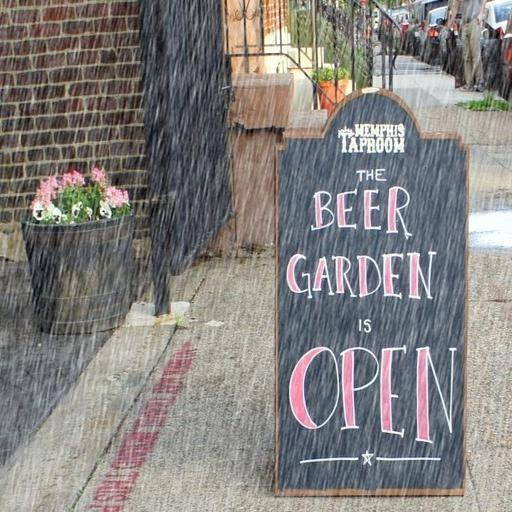 MEMPHIS
TAPROOM
THE
BEER
GARDEN
IS
OPEN